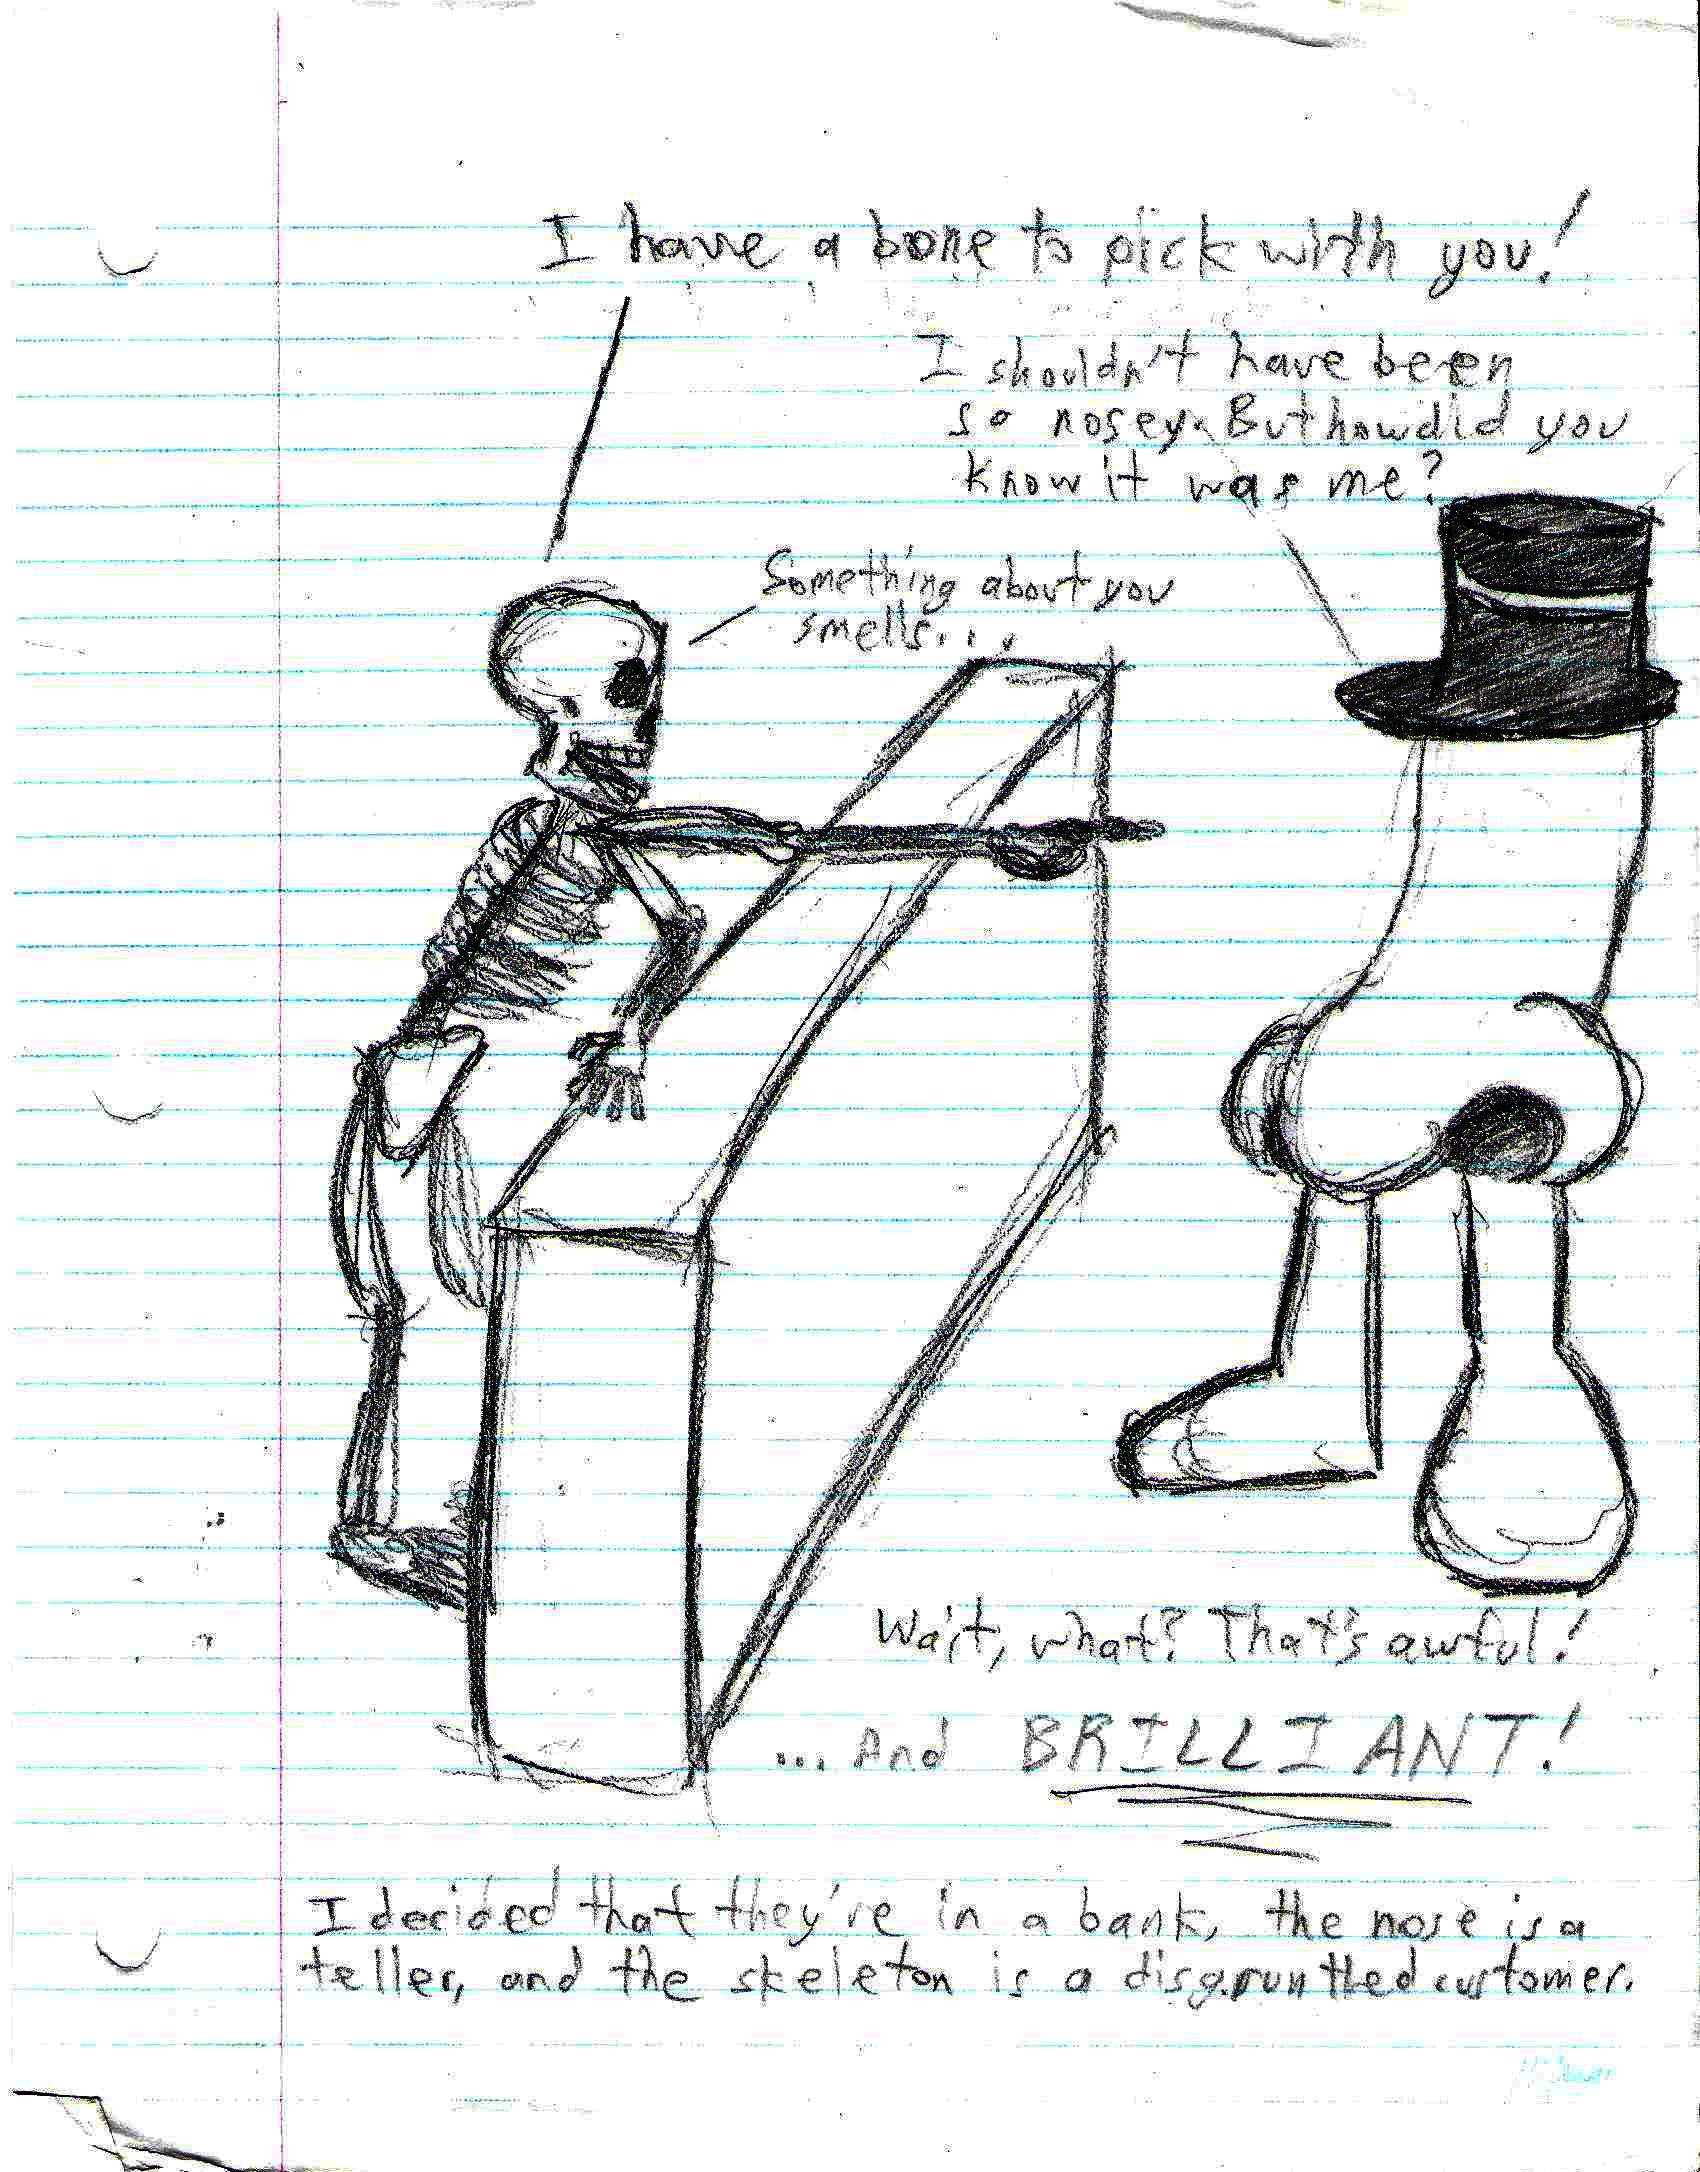 I have a bone to pick with you!
I shouldn't have been
so nosey. But how did you
know it was me?
Something about you
smells...
Wait, what? That's awful!
... And BRILLIANT!
I decided that they're in a bank, the nose is a
teller, and the skeleton is a disgruntled customer.